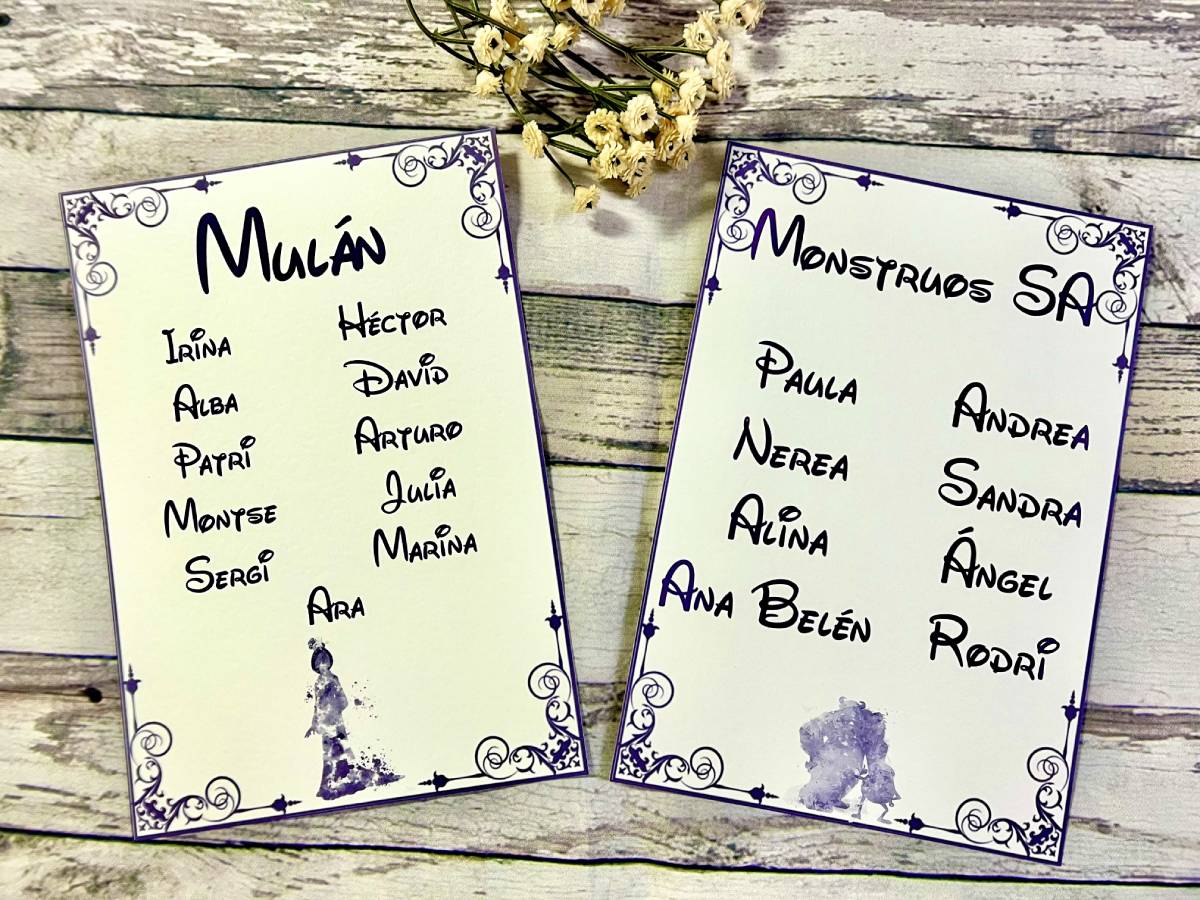 Mulán
Irina
Alba
Patri
Montse
Sergi
Héctor
David
Arturo
Julia
Marina
Ara
Monstruos SA
Paula
Nerea
Alina
Ana Belén
Andrea
Sandra
Ángel
Rodri